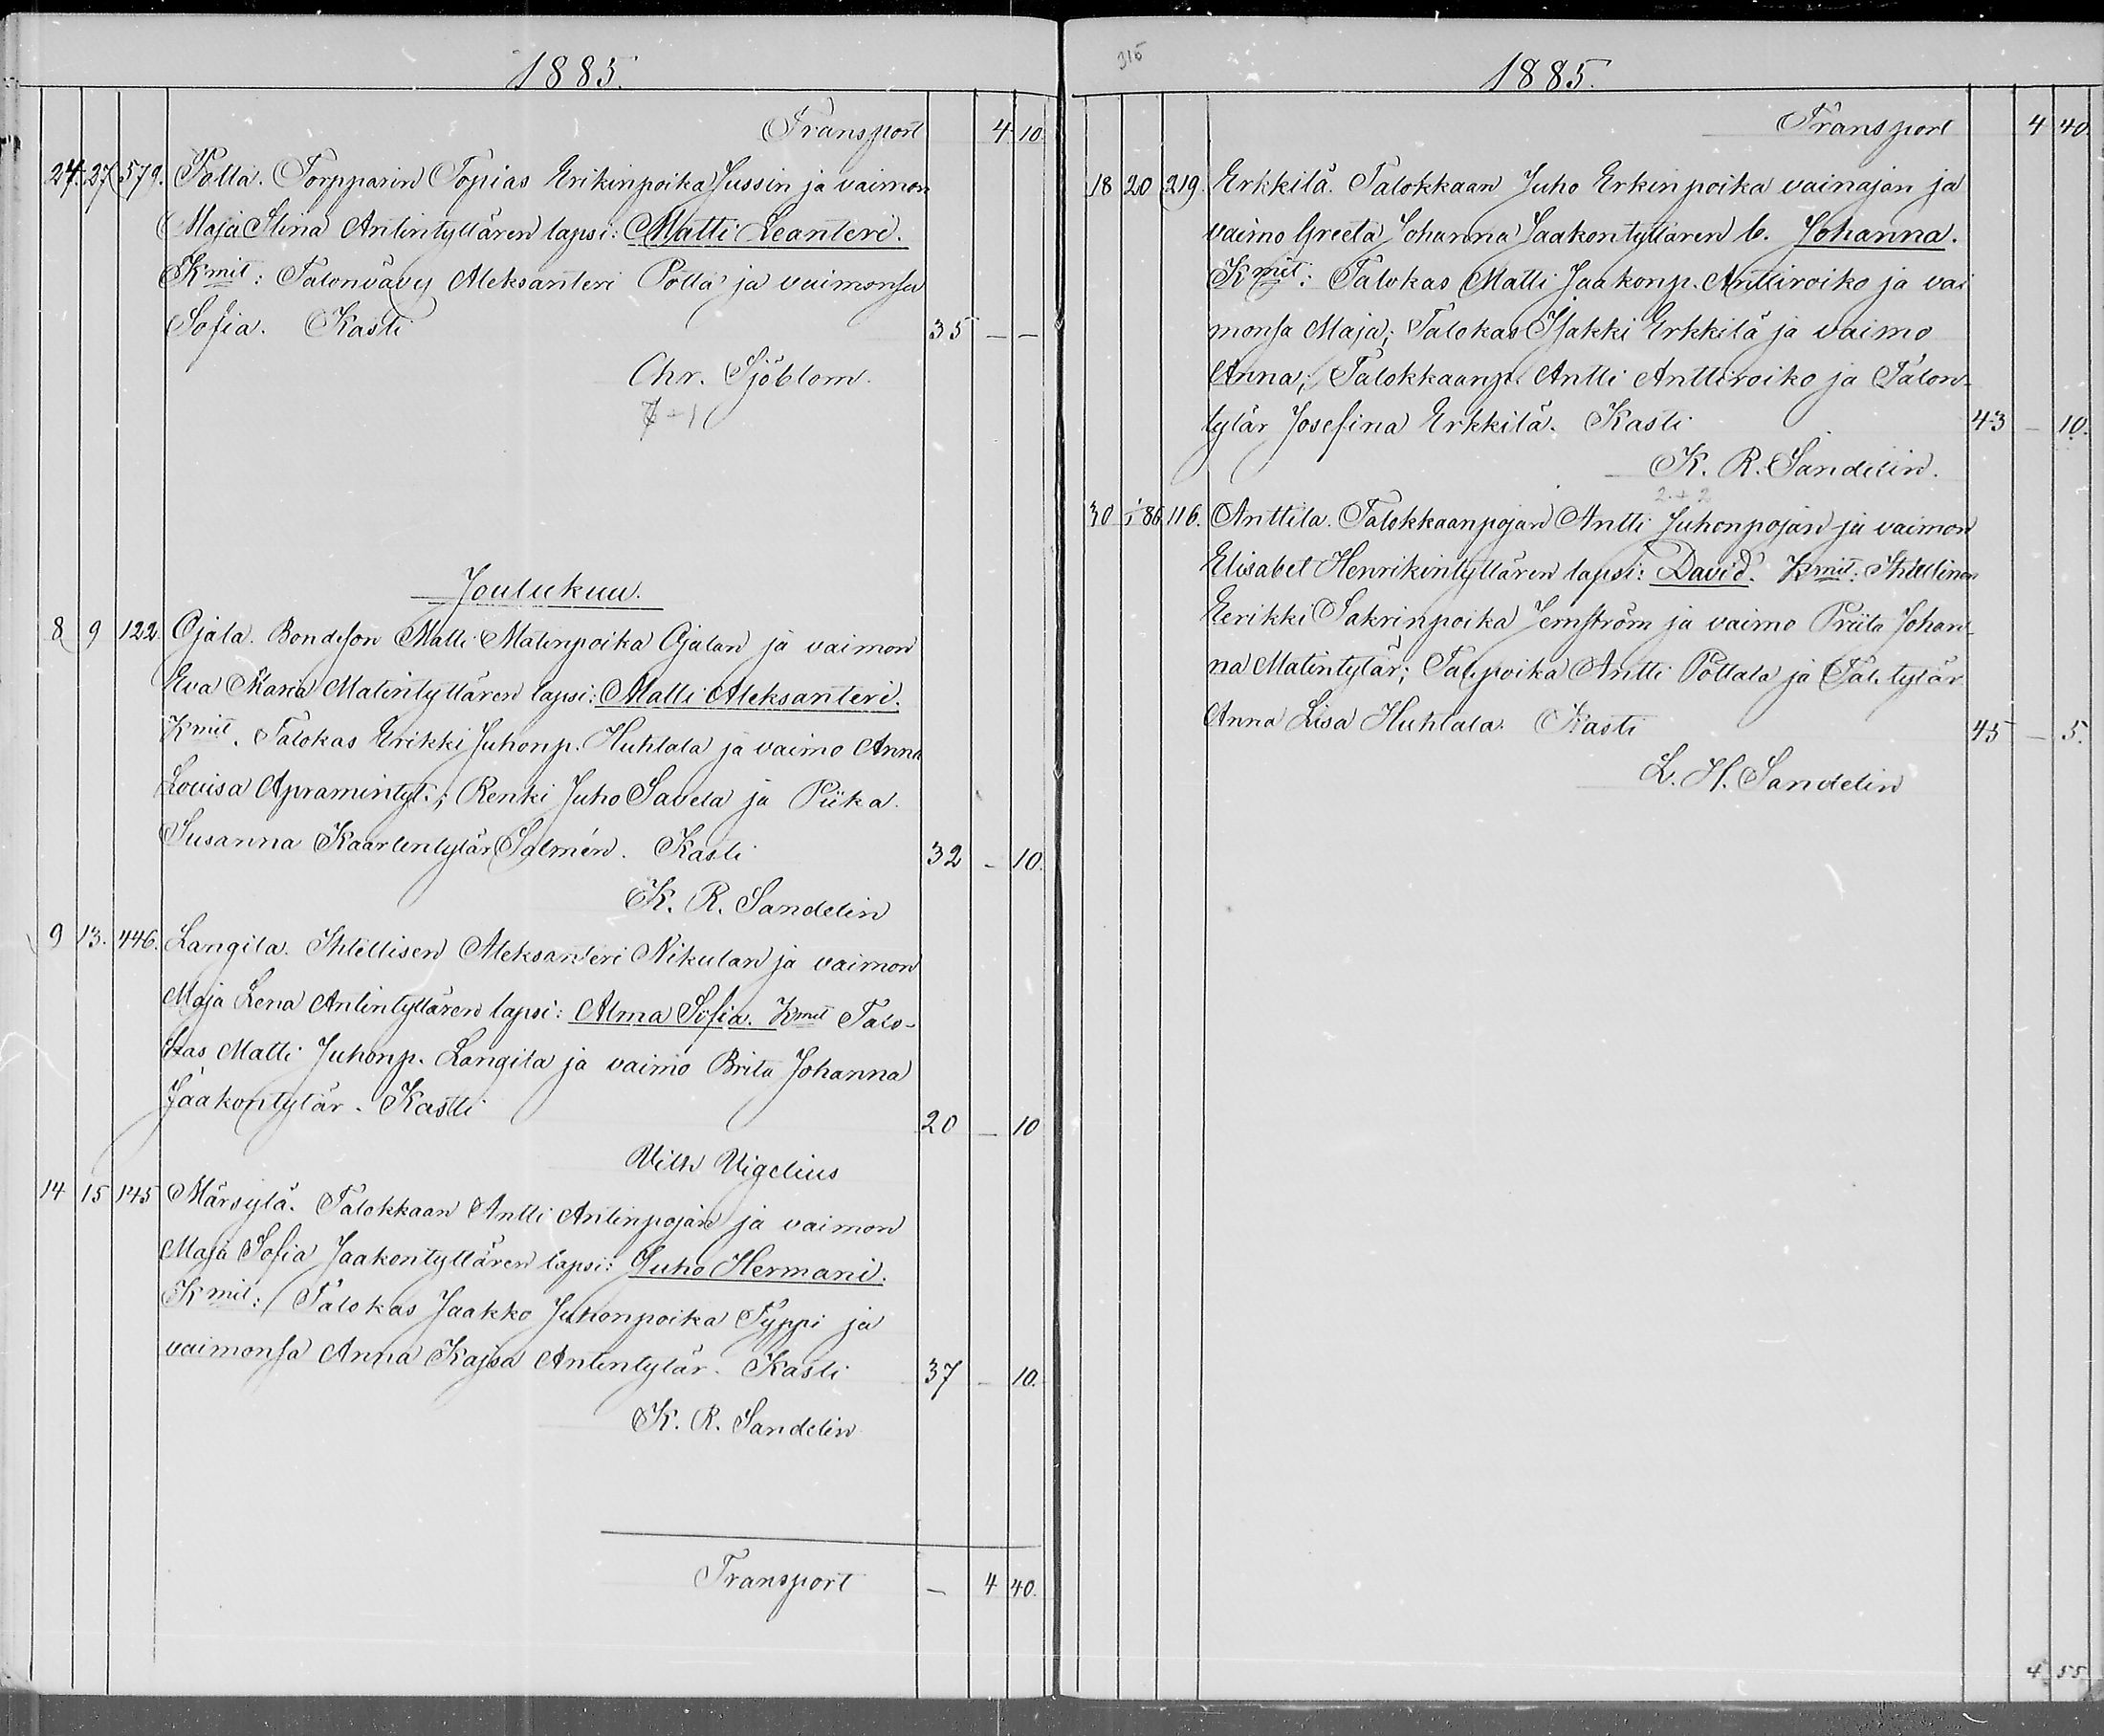 1885.
Transport 4 10.
24. 27 579. Pótta. Torpparin Topias Erikinpoika Jussin ja vaimon
Maja Stina Antintyttären lapsi: Matti Leanteri.
Kmit: Talonvävy Aleksanteri Pottá ja vaimonsa
Sofia. Kasti 35 — —
Chr. Sjöblom.
7+1
Joulukuu.
8 9 122 Ojala. Bondeson Matti Matinpoika Ojalan ja vaimon
Eva Maria Matintyttären lapsi: Matti Aleksanteri.
Kmit. Talokas Erikki Juhonp. Huhtala ja vaimo Anna
Lovisa Apramintyt.; Renki Juho Savela ja Piika
Susanna Kaarlentytär Salmén. Kasti 32 - 10.
K. R. Sandelin
9 13. 446. Langila. Ithellisen Aleksanteri Nikulan ja vaimon
Maja Lena Antintyttären lapsi: Alma Sofia. Kmit Talo-
kas Matti Juhonp. Langila ja vaimo Brita Johanna
Jaakontytär. Kastti 20 — 10
Vilh Vigelius
14 15 145 Märsylä. Talokkaan Antti Antinpojan ja vaimon
Maja Sofia Jaakontyttären lapsi: Juho Hermani.
Kmit: Talokas Jaakko Juhonpoika Typpi ja
vaimonsa Anna Kajsa Antintytär. Kasti 37 — 10.
K. R. Sandelin
Transport — 4 40.
215
1885.
Transport 4 40.
18 20 219. Erkkilä. Talokkaan Juho Erkinpoika vainajan ja
vaimo Greeta Johanna Jaakontyttären l. Johanna.
Kmit: Talokas Matti Jaakonp. Anttiroiko ja vai
monsa Maja; Talokas Isakki Erkkilä ja vaimo
Anna; Talokkaanp. Antti Anttiroiko ja Talon-
tytär Josefina Erkkilä. Kasti 43 — 10.
K. R. Sandelin.
2+2
30 1/86 116. Anttila. Talokkaanpojan Antti Juhonpojan ja vaimon
Elisabet Henrikintyttären lapsi: David. Kmit: Ithellinen
Eerikki Sakrinpoika Jernström ja vaimo Priita Johan-
na Matintytär; Tal.poika Antti Pottala ja Tal.tytär
Anna Lisa Huhtala. Kasti 45 — 5.
L. H. Sandelin
4 55